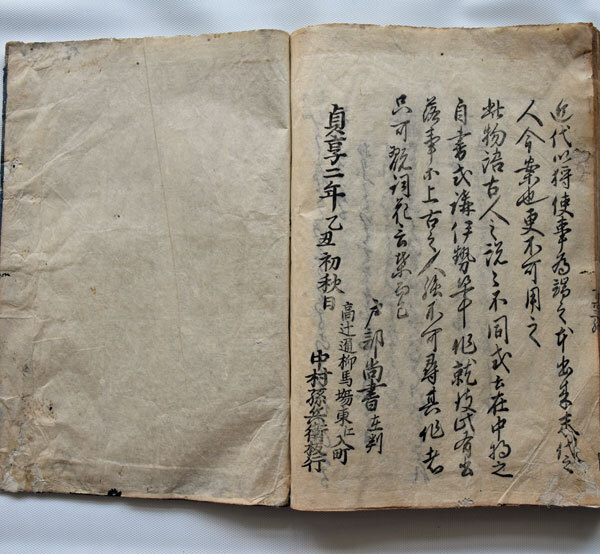 近代以狩使事為端之本出来末代之
人今案也更不可用之
此物語古人之説々不同或云在中将之
自書或称伊勢筆作就彼此有書
落事等上古之人強不可尋其作者
只可翫詞花言葉而已
戸部尚書在判
貞享二年乙丑初秋日
高辻通柳馬場東江入町
中村孫兵衛行